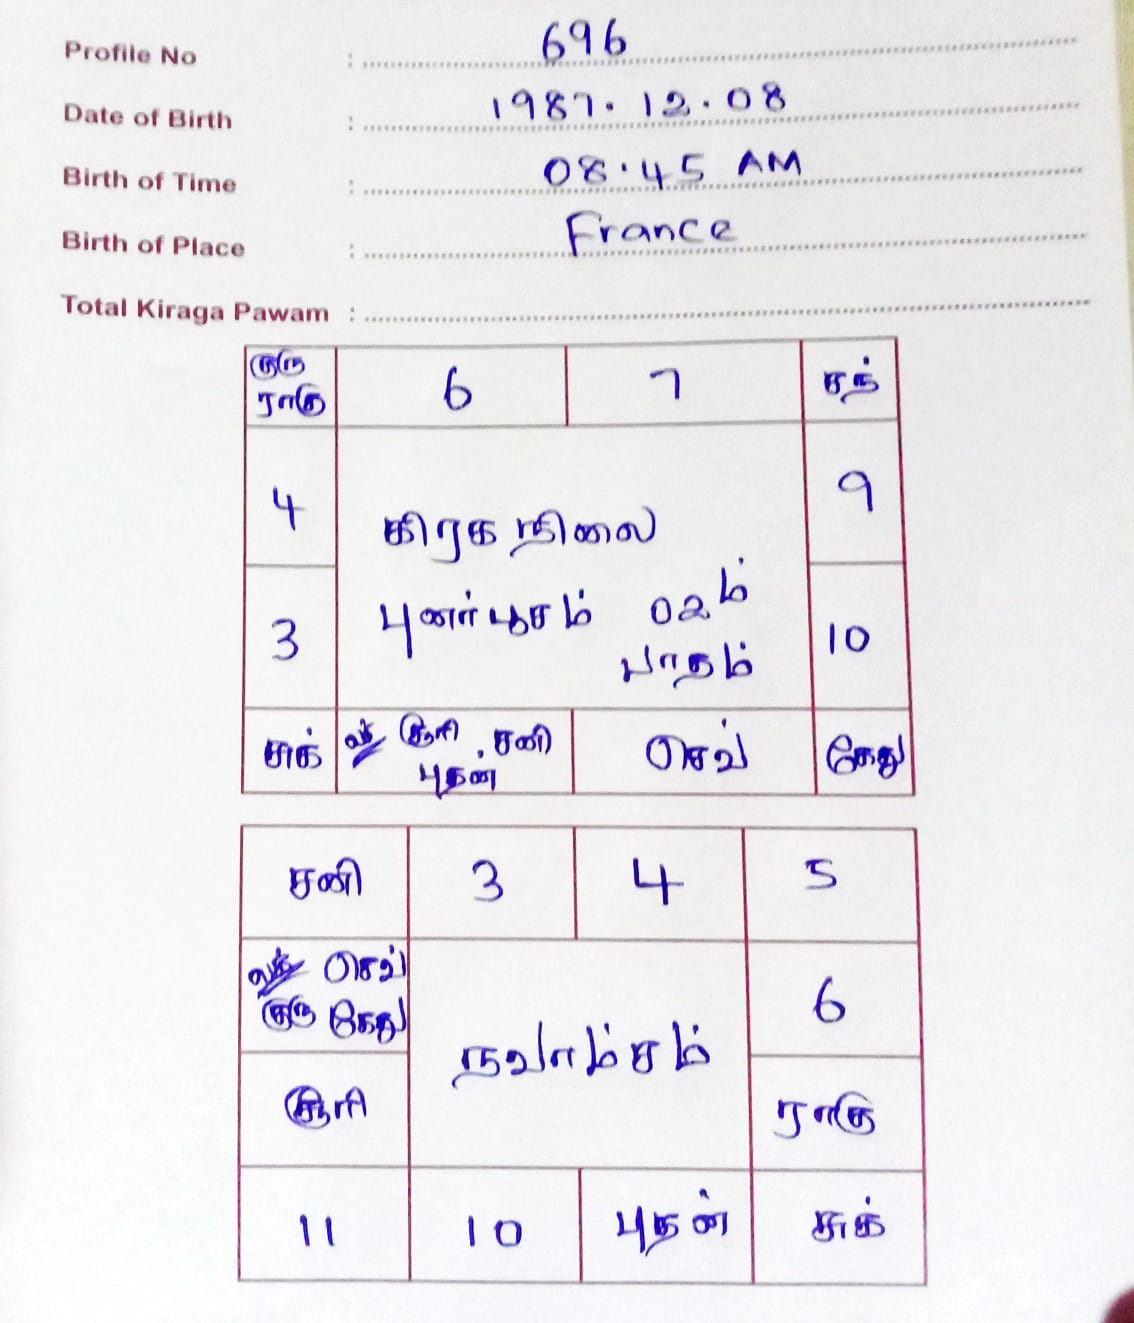 Profile No : 696
Date of Birth : 1987.12.08
Birth of Time : 08.45 AM
Birth of Place : France
Total Kiraga Pawam :
குரு
ராகு
6
7
சந்
4
9
கிரக நிலை
புனர்பூசம் 02ம்
பாதம்
3
10
சுக்
ல சூரி, சனி
புதன்
செவ்
கேது
சனி
3
4
5
ல செவ்
குரு கேது
6
நவாம்சம்
சூரி
ராகு
11
10
புதன்
சுக்